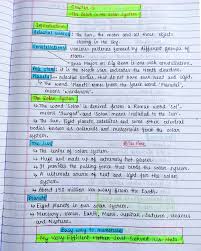 Chapter-
The Earth in the Solar System
Introduction:
Celestial bodies : the sun, the moon and all those objects
shining in the sky.
Constellations : various patterns formed by different groups of
stars.
Ursa Major or Big Bear is one such constellation.
Pole star : it is the North star and indicates the north direction.
Planets : celestial bodies that do not have their own heat and light.
The word 'Planet' comes from the Greek word "Planetai",
means 'Wanderers'.
The Solar System
The word 'Solar' is derived from a Roman word 'Sol',
means 'Sungod' and 'Solar' means related to the Sun.
The Sun, Eight planets, satellites and some other celestial
bodies known as asteroids and meteoroids form the solar
system.
The Sun
is the centre of solar system.
Huge and made up of extremely hot gases.
It provides the pulling force that binds the solar system.
It is ultimate source of heat and light for the solar
system.
About 150 million km away from the Earth.
Planets
Eight planets in our solar system.
Mercury, Venus, Earth, Mars, Jupiter, Saturn, Uranus
and Neptune.
Easy way to memorise
My Very Efficient Mother Just Served Us Nuts.